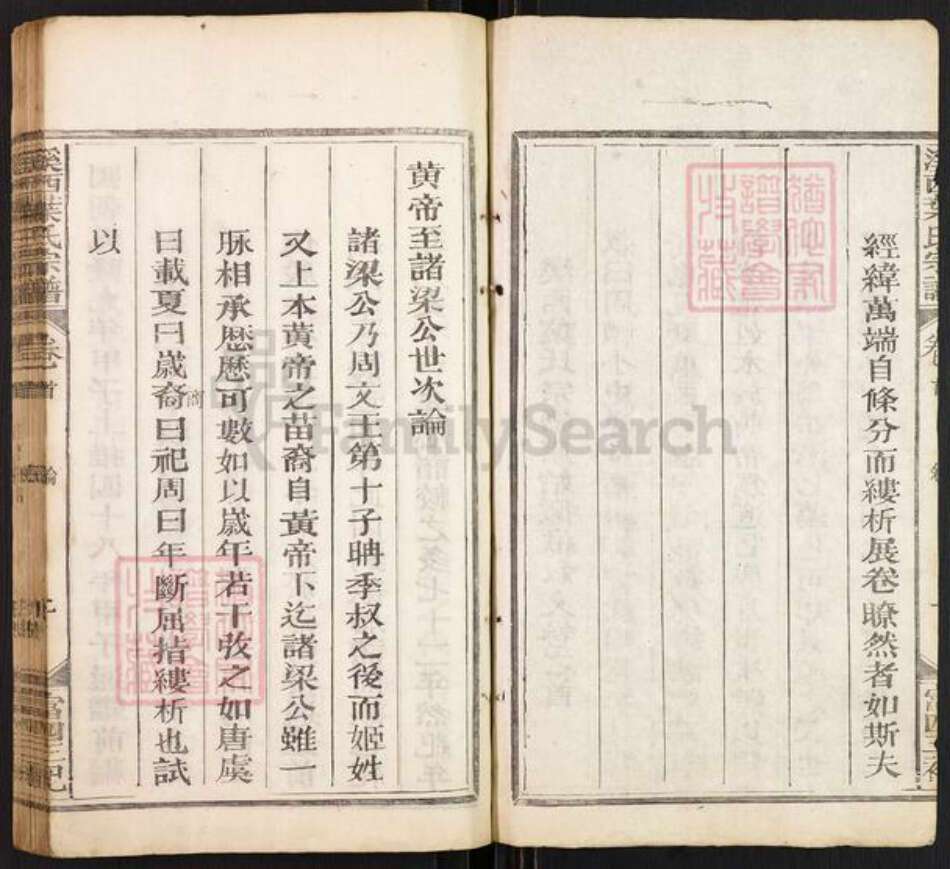 經緯萬端自條分而縷析展卷瞭然者如斯夫
黄帝至諸梁公世次論
諸梁公乃周文王第十子聃季叔之後而姬姓
又上本黄帝之苗裔自黃帝下迄諸梁公雖一
脉相承歷歷可數如以歲年若干攷之如唐虞
曰載夏曰歲商曰祀周曰年斷屈指縷析也試
以
溪西葉氏宗譜
卷首
論
FamilySearch